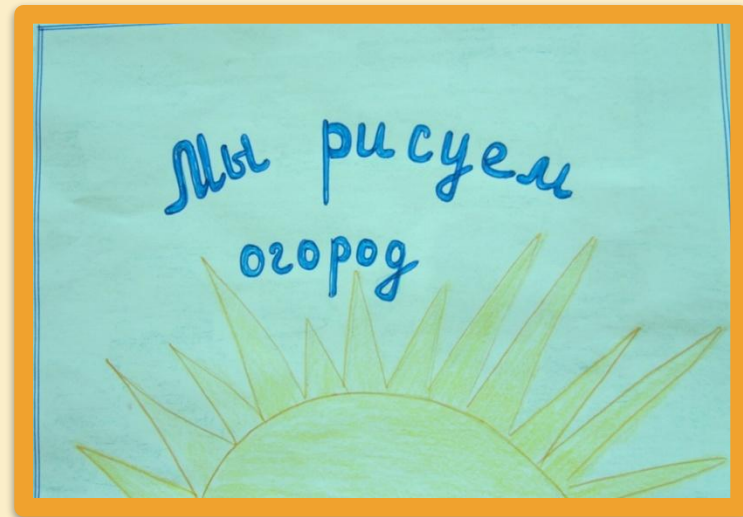 Мы рисуем
огород